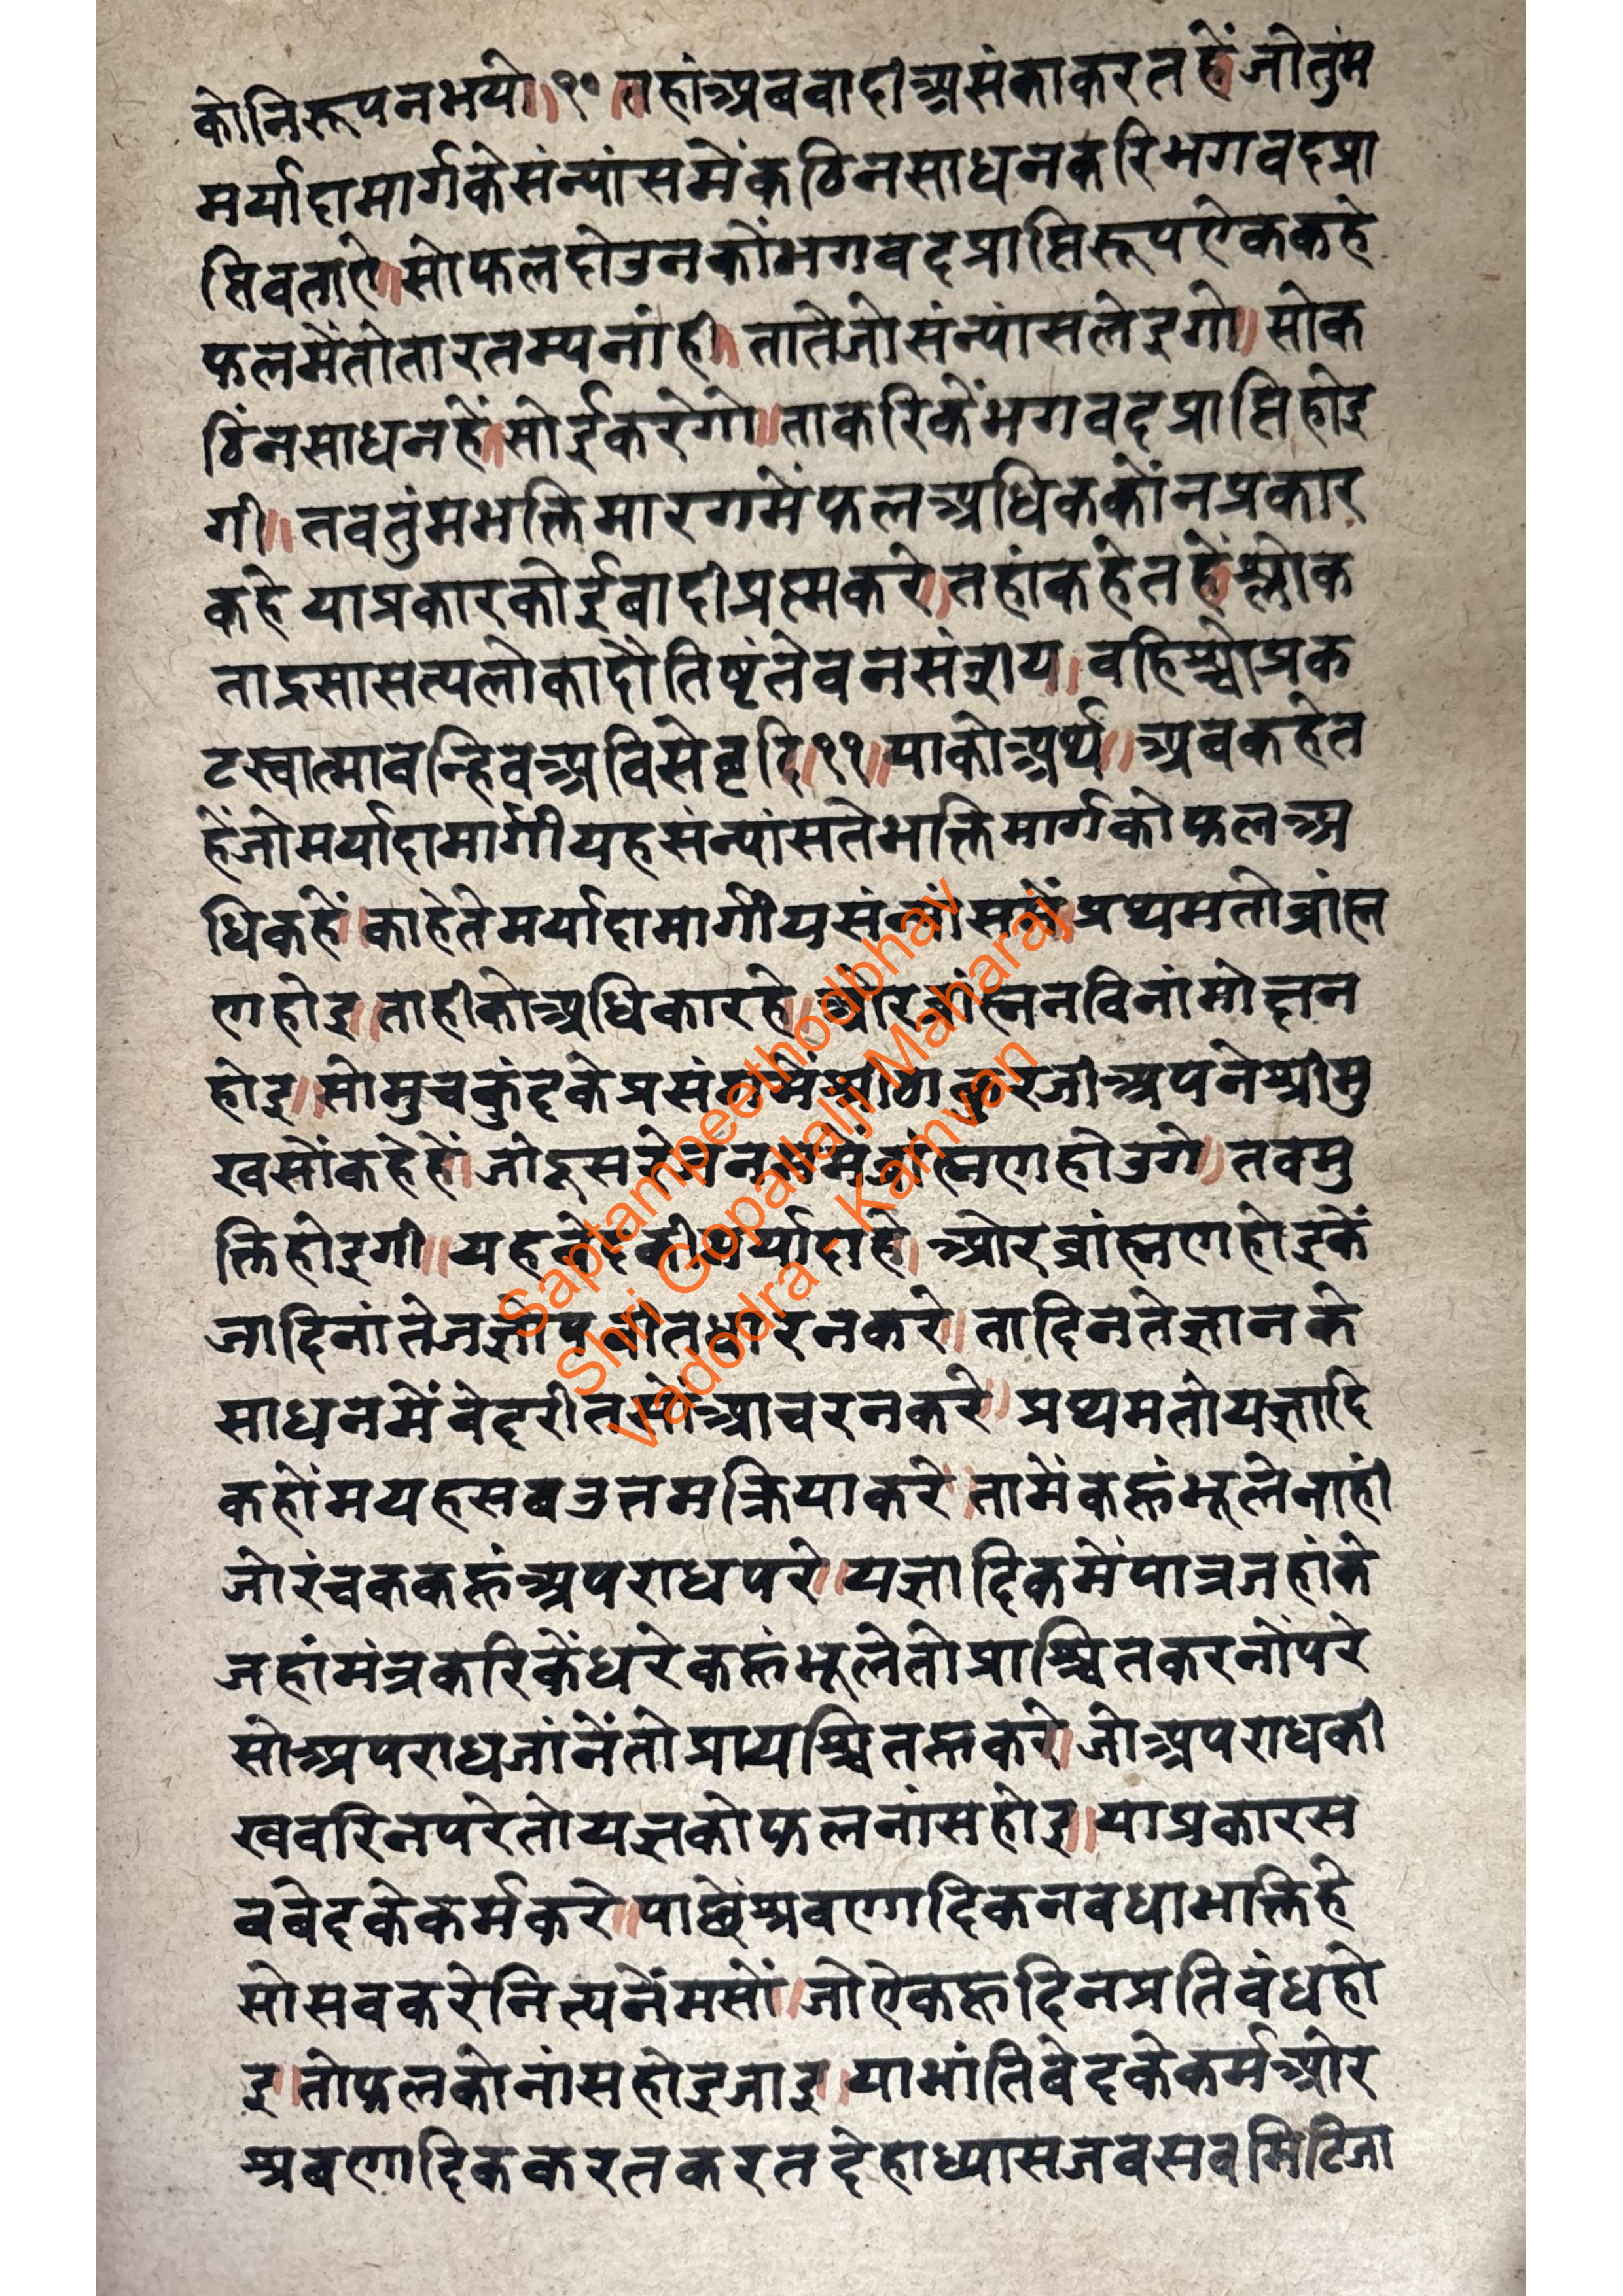 कोनिरूपनभयो॥१०॥तहांअबवादीअसंकाकरतहें॥जोतुंम
मर्यादामार्गकेसंन्यांसमेंकठिनसाधनकरिभगवदप्रा
प्तिवताऐ॥सोफलदोउनकोंभगवदप्राप्तिरूपऐककहे
फलमेंतोतारतम्यनांही॥तातेजोसंन्यांसलेइगो॥सोक
ठिंनसाधनहें॥सोईकरेगो॥ताकरिकेंभगवदप्राप्तिहोइ
गी॥तवतुंमभक्तिमारगमेंफलअधिककोंनप्रकार
कहे याप्रकारकोईबादीप्रस्मकरे॥तहांकहेतहें॥श्लोक
ताद्रसासत्यलोकादौतिष्टंतेवनसंशय।वहिश्चोप्रक
टस्वात्मावन्हिवअविसेद्यदि॥११॥याकोअर्थ॥अवकहेत
हेंजोमर्यादामार्गीयहसंन्यांसतेभक्तिमार्गकोफलअ
धिकहें॥काहेतेमर्यादामार्गीयसंन्यांसमें॥प्रथमतोब्रांह्म
णहोइ॥ताहीकोअधिकारहे॥ओरब्रांह्मनविनांमोक्षन
होइ॥सोमुचकुंदकेप्रसंगमेंश्रीठाकुरजीअपनेश्रीमु
खसोंकहेहें॥जोदूसरेजनममेंब्रांह्मणहोउगे॥तवमु
क्तिहोइगी॥यहवेदकीमर्यादाहे॥ओरब्रांह्मणहोइकें
जादिनांतेजज्ञोपवीतधारनकरे॥तादिनतेज्ञानके
साधनमेंवेदरीतसोंआचरनकरे॥प्रथमतोयज्ञादि
कहोंमयहसवउत्तमक्रियाकरे॥तामेंकह्तंभूलेनाहीं
जोरंचककह्तंअपराधपरे॥यज्ञादिकमेंपात्रजहांके
जहांमंत्रकरिकेंधरेकह्तंभूलेतोप्राश्चितकरनोंपरे
सोअपराधजांनेंतोप्रायश्चितह्तकरे॥जोअपराधकी
खवरिनपरेतोयज्ञकोफलनांसहोइ॥याप्रकारस
ववेदकेकर्मकरे॥पाछेंश्रवणादिकनवधाभक्तिहे
सोसवकरेनित्यनेंमसों॥जोऐकह्तदिनप्रतिवंधहो
इ॥तोफलकोनांसहोइजाइ॥याभांतिवेदकेकर्मओर
श्रवणादिककरतकरतदेहाध्यासजवसवमिटिजा
Saptampeethodbhav
Shri Gopallalji Maharaj
Vadodra - Kamvan